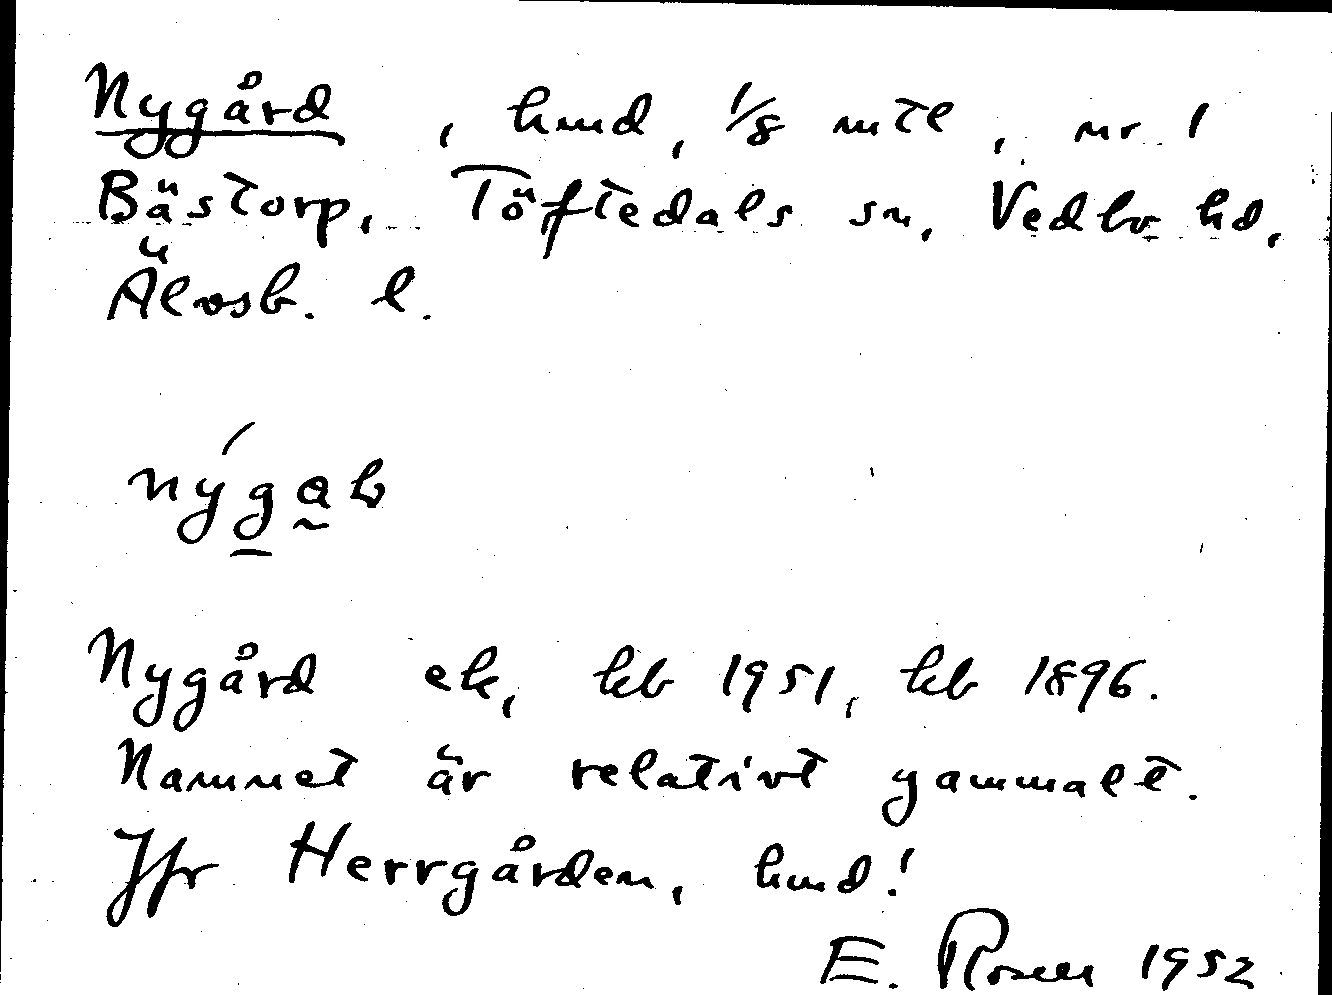 Nygård, hmd, 1/8 mtl, nr 1
Bästorp, Töftedals sn, Vedbo hd,
Älvsb. l.
Nygård ek, kb 1951, kb 1896.
Namnet är relativt gammalt.
Jfr Herrgården, hmd!
E. Rosell 1952